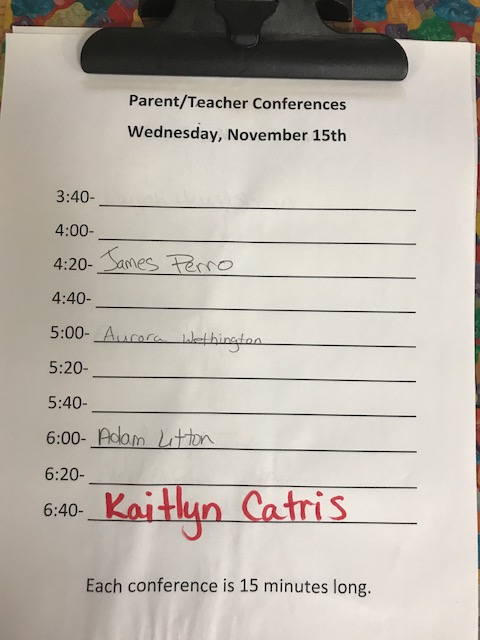 Parent/Teacher Conferences
Wednesday, November 15th
3:40-
4:00-
4:20- James Perro
4:40-
5:00- Aurora Wethington
5:20-
5:40-
6:00- Adam Litton
6:20-
6:40- Kaitlyn Catris
Each conference is 15 minutes long.